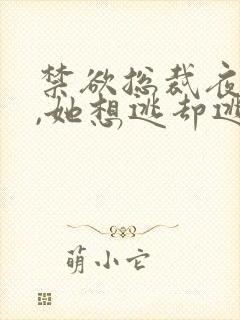 禁欲总裁夜
,她想逃却逃
萌小它